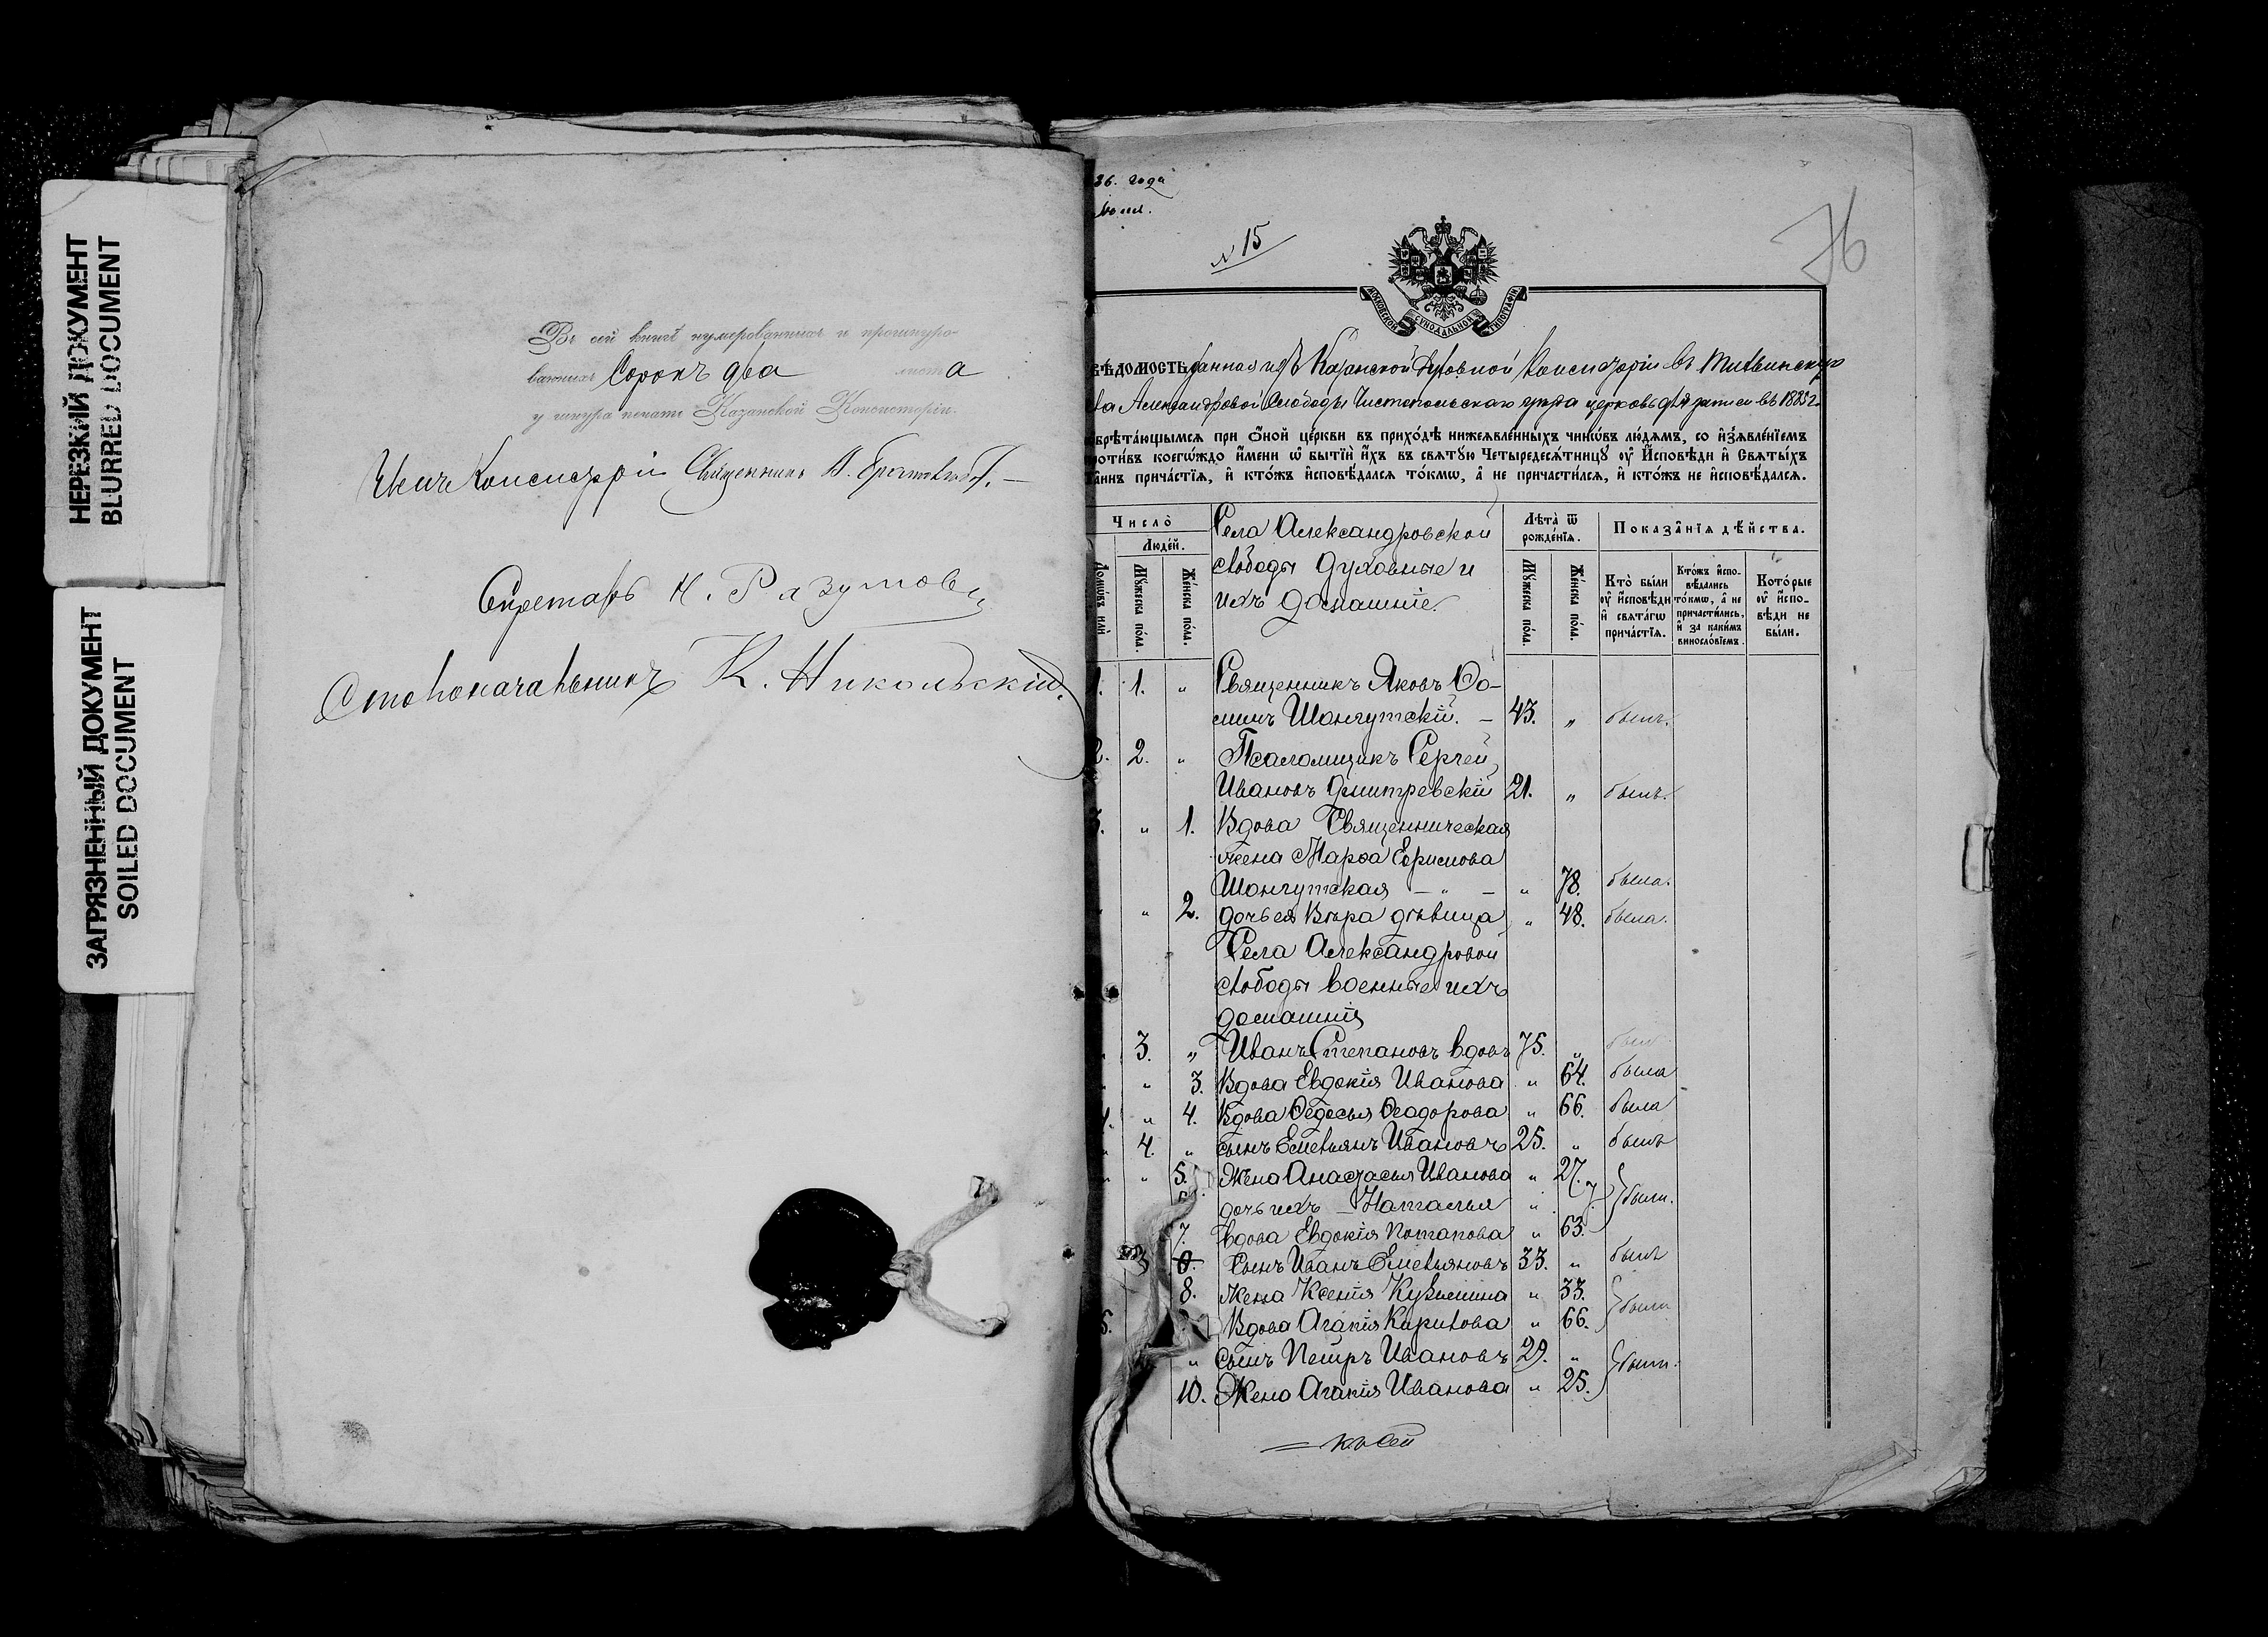 НЕРЕЗКИЙ ДОКУМЕНТ
BLURRED DOCUMENT
ЗАГРЯЗНЕННЫЙ ДОКУМЕНТ
SOILED DOCUMENT
Въ сей книгѣ нумерованныхъ и прошнуро-
ванныхъ Сорокъ два листа
у шнура печать Казанской Консисторіи.
Членъ Консисторіи Священникъ В.
Секретарь Н. Разумов
Столоначальникъ К. Никольскій
36. года
№ 15
76
МОСКОВСКОЙ СѴНОДАЛЬНОЙ ТИПОГРАФІИ
ВѢДОМОСТЬ данная изъ Казанской Духовной Консисторіи въ
Александровой Слободы Чистопольскаго уѣзда церковь для записи въ 1885 г.
ѡбрѣта́ющымсѧ при ѻ҆́ной це́ркви въ прихо́дѣ нижеѧвле́нныхъ чинѡ́въ лю́дѧмъ, со и҆зъѧвле́нїемъ
проти́въ коегѡ́ждо и҆́мени ѡ҆ бытїѝ и҆́хъ въ свѧту́ю Четыредесѧ́тницу ᲂу҆ И҆́сповѣди и҆ Свѧты́хъ
Та̑инъ прича́стїѧ, и҆ кто́жъ и҆сповѣ́далсѧ то́кмѡ, а҆ не причасти́лсѧ, и҆ кто́жъ не и҆сповѣ́далсѧ.
Число̀
Люде́й.
Домѡ́въ и҆лѝ
Мꙋ́жеска по́ла.
Же́нска по́ла.
Села Александровской
слободы Духовные и
ихъ домашніе
Лѣта̀ ѿ рожде́нїѧ.
Мꙋ́жеска по́ла.
Же́нска по́ла.
Показа̑нїѧ дѣ́йства.
Кто̀ бы́ли ᲂу҆ и҆́сповѣди и҆ свѧта́гѡ прича́стїѧ.
Кто́жъ и҆спо-вѣ́дались то́кмѡ, а҆ не причасти́лись, и҆ за каки́мъ виносло́вїемъ.
Кото́рые ᲂу҆ и҆́спо-вѣди не бы́ли.
1. 1. „ Священникъ Яковъ Ѳо-
минъ Шонгутскій. — 43. „ былъ.
2. 2. „ Псаломщикъ Сергей
Ивановъ Дмитревскій 21. „ былъ.
3. „ 1. Вдова Священническая
жена Марѳа Ефимова
Шонгутская — „ — „ 78. была.
„ „ 2. дочь ея Вѣра дѣвица „ 48. была.
Села Александровой
слободы военные ихъ
домашнія
„ 3. „ Иванъ Степановъ вдовъ 75. „ был
„ „ 3. Вдова Евдокія Иванова „ 64. была
4. „ 4. Вдова Ѳедосья Ѳеодорова „ 66. была
„ 4. „ сынъ Емельянъ Ивановъ 25. „ былъ
„ „ 5. Жена Анастасья Иванова „ 27.
дочь ихъ — Наталья „ 7. были.
7. вдова Евдокія Потапова „ 63.
Сынъ Иванъ Емельяновъ 33. „ былъ
8. жена Ксенія Кузьмина „ 33.
5. Вдова Агапія Кирилова „ 66. были
„ Сынъ Петръ Ивановъ 29. „
10. Жена Агапія Иванова „ 25. были.
къ сей